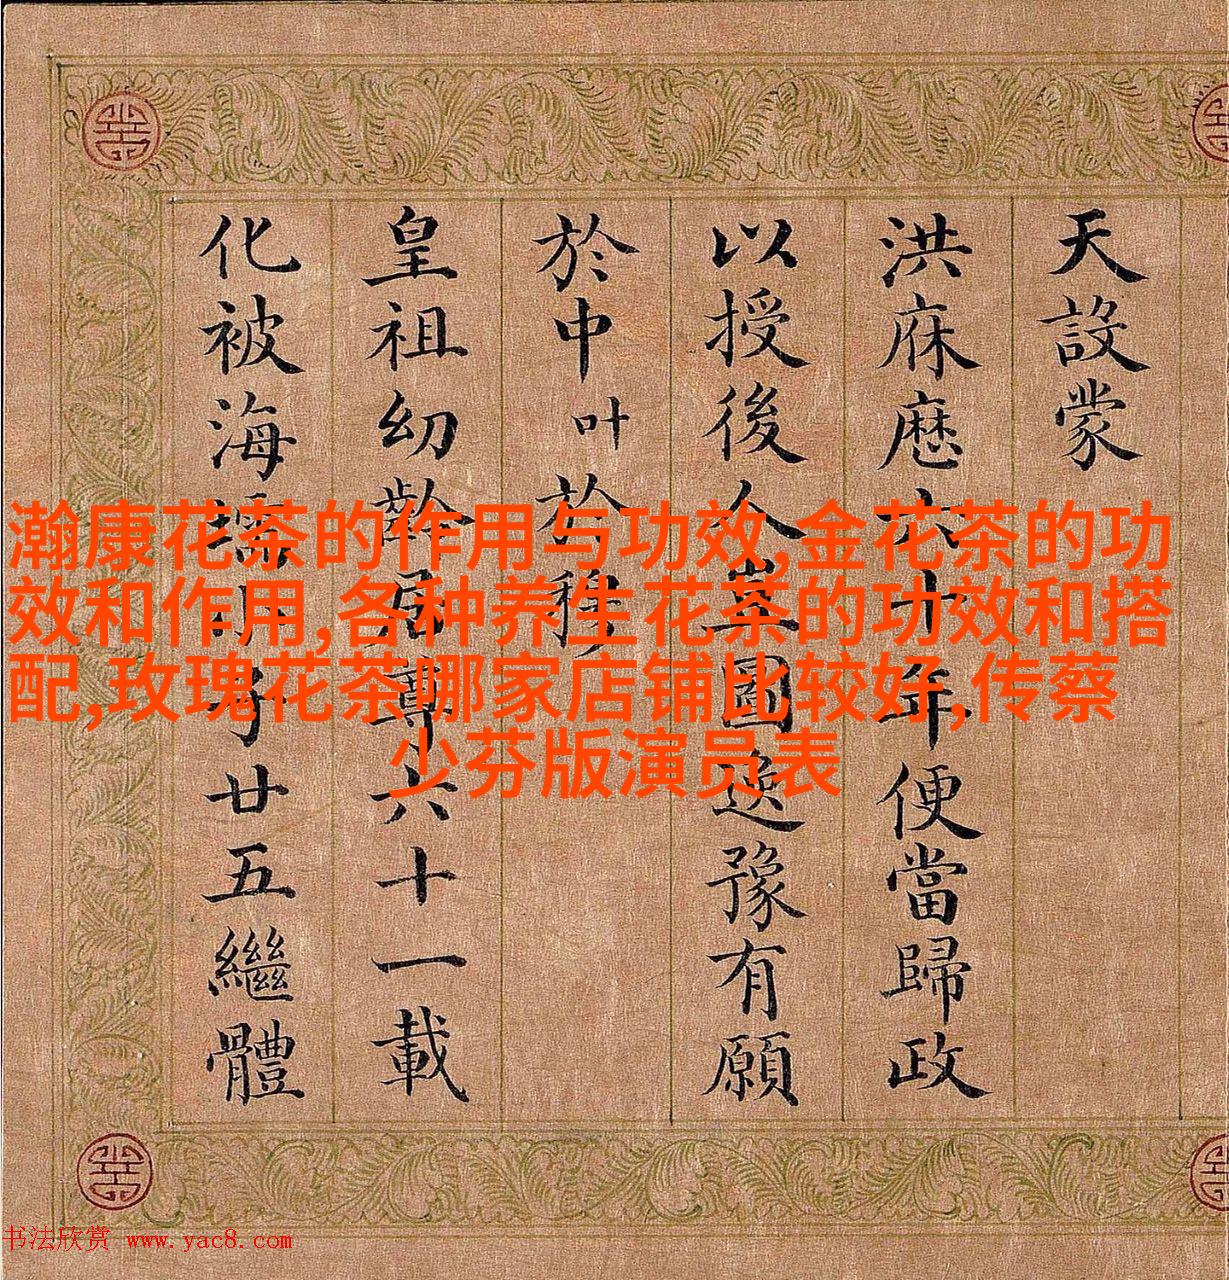 天設蒙
洪庥歷六十年便當歸政
以授後人豈圖逸豫有願
於中叶於移
皇祖幼齡居尊六十一載
化被海壖小子廿五繼體
瀚康花茶的作用与功效,金花茶的功
效和作用,各种养生花茶的功效和搭
配,玫瑰花茶哪家店铺比较好,传蔡
少芬版演员表
书法欣赏 www.yac8.com